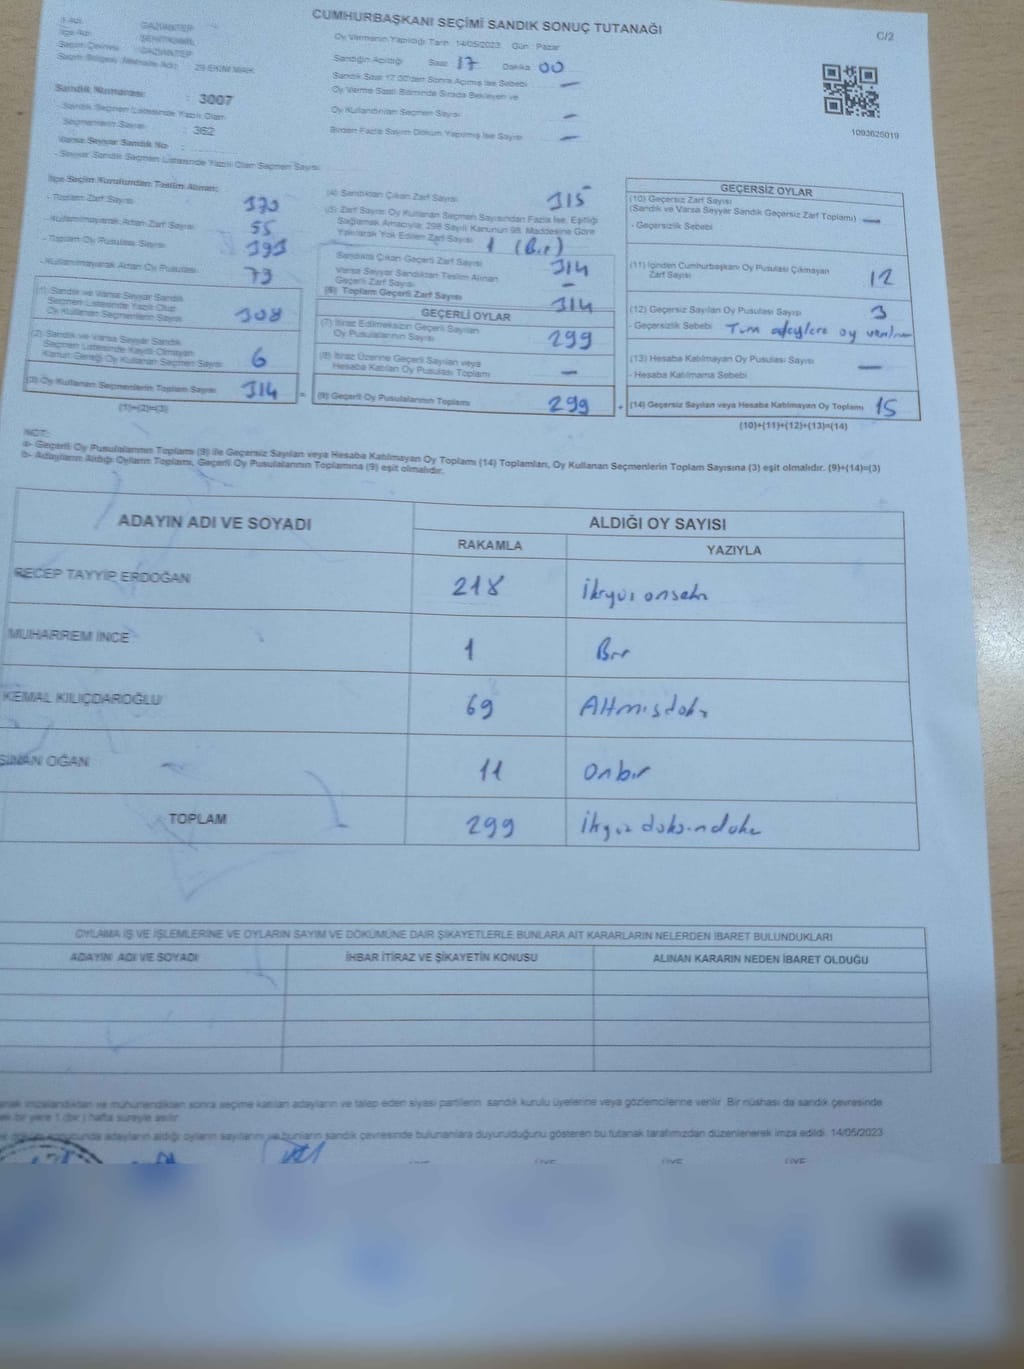 CUMHURBAŞKANI SEÇİMİ SANDIK SONUÇ TUTANAĞI
C/2
İli Adı : GAZİANTEP
İlçe Adı : ŞEHİTKAMİL
Seçim Çevresi : GAZİANTEP
29 EKİM MAH.
Oy Vermenin Yapıldığı Tarih: 14/05/2023 Gün: Pazar
Sandığın Açıldığı Saat 17 Dakika 00
Sandık Saat 17.00'den Sonra Açılmış İse Sebebi —
Oy Verme Saati Bitiminde Sırada Bekleyen ve
Oy Kullandırılan Seçmen Sayısı —
Birden Fazla Sayım Döküm Yapılmış İse Sayısı —
1093626019
Sandık Numarası : 3007
- Sandık Seçmen Listesinde Yazılı Olan
Seçmenlerin Sayısı : 362
Varsa Seyyar Sandık No :
- Seyyar Sandık Seçmen Listesinde Yazılı Olan Seçmen Sayısı :
İlçe Seçim Kurulundan Teslim Alınan;
- Toplam Zarf Sayısı 370
- Kullanılmayarak Artan Zarf Sayısı 55
- Toplam Oy Pusulası Sayısı 393
- Kullanılmayarak Artan Oy Pusulası 79
(1) Sandık ve Varsa Seyyar Sandık
Seçmen Listesinde Yazılı Olup
Oy Kullanan Seçmenlerin Sayısı 308
(2) Sandık ve Varsa Seyyar Sandık
Seçmen Listesinde Kayıtlı Olmayan
Kanun Gereği Oy Kullanan Seçmen Sayısı 6
(3) Oy Kullanan Seçmenlerin Toplam Sayısı 314
(1)+(2)=(3)
(4) Sandıktan Çıkan Zarf Sayısı 315
(5) Zarf Sayısı Oy Kullanan Seçmen Sayısından Fazla İse, Eşitliği
Sağlamak Amacıyla; 298 Sayılı Kanunun 98. Maddesine Göre
Yakılarak Yok Edilen Zarf Sayısı 1 (Bir)
Sandıkta Çıkan Geçerli Zarf Sayısı 314
Varsa Seyyar Sandıktan Teslim Alınan
Geçerli Zarf Sayısı —
(6) Toplam Geçerli Zarf Sayısı 314
GEÇERLİ OYLAR
(7) İtiraz Edilmeksizin Geçerli Sayılan
Oy Pusulalarının Sayısı 299
(8) İtiraz Üzerine Geçerli Sayılan veya
Hesaba Katılan Oy Pusulası Toplamı —
(9) Geçerli Oy Pusulalarının Toplamı 299
GEÇERSİZ OYLAR
(10) Geçersiz Zarf Sayısı
(Sandık ve Varsa Seyyar Sandık Geçersiz Zarf Toplamı) —
- Geçersizlik Sebebi
(11) İçinden Cumhurbaşkanı Oy Pusulası Çıkmayan
Zarf Sayısı 12
(12) Geçersiz Sayılan Oy Pusulası Sayısı 3
- Geçersizlik Sebebi Tüm adaylara oy
(13) Hesaba Katılmayan Oy Pusulası Sayısı —
- Hesaba Katılmama Sebebi
(14) Geçersiz Sayılan veya Hesaba Katılmayan Oy Toplamı 15
(10)+(11)+(12)+(13)=(14)
NOT:
a- Geçerli Oy Pusulalarının Toplamı (9) ile Geçersiz Sayılan veya Hesaba Katılmayan Oy Toplamı (14) Toplamları, Oy Kullanan Seçmenlerin Toplam Sayısına (3) eşit olmalıdır. (9)+(14)=(3)
b- Adayların Aldığı Oyların Toplamı, Geçerli Oy Pusulalarının Toplamına (9) eşit olmalıdır.
ADAYIN ADI VE SOYADI ALDIĞI OY SAYISI
RAKAMLA YAZIYLA
RECEP TAYYİP ERDOĞAN 218 İkiyüz onsekiz
MUHARREM İNCE 1 Bir
KEMAL KILIÇDAROĞLU 69 Altmışdokuz
SİNAN OĞAN 11 Onbir
TOPLAM 299 İkiyüz doksandokuz
OYLAMA İŞ VE İŞLEMLERİNE VE OYLARIN SAYIM VE DÖKÜMÜNE DAİR ŞİKAYETLERLE BUNLARA AİT KARARLARIN NELERDEN İBARET BULUNDUKLARI
ADAYIN ADI VE SOYADI İHBAR İTİRAZ VE ŞİKAYETİN KONUSU ALINAN KARARIN NEDEN İBARET OLDUĞU
imzalandıktan ve mühürlendikten sonra seçime katılan adayların ve talep eden siyasi partilerin sandık kurulu üyelerine veya gözlemcilerine verilir. Bir nüshası da sandık çevresinde
bir yere 1 (bir) hafta süreyle asılır.
adayların aldığı oyların sayılarını ve bunların sandık çevresinde bulunanlara duyurulduğunu gösteren bu tutanak tarafımızdan düzenlenerek imza edildi. 14/05/2023
ÜYE ÜYE ÜYE ÜYE